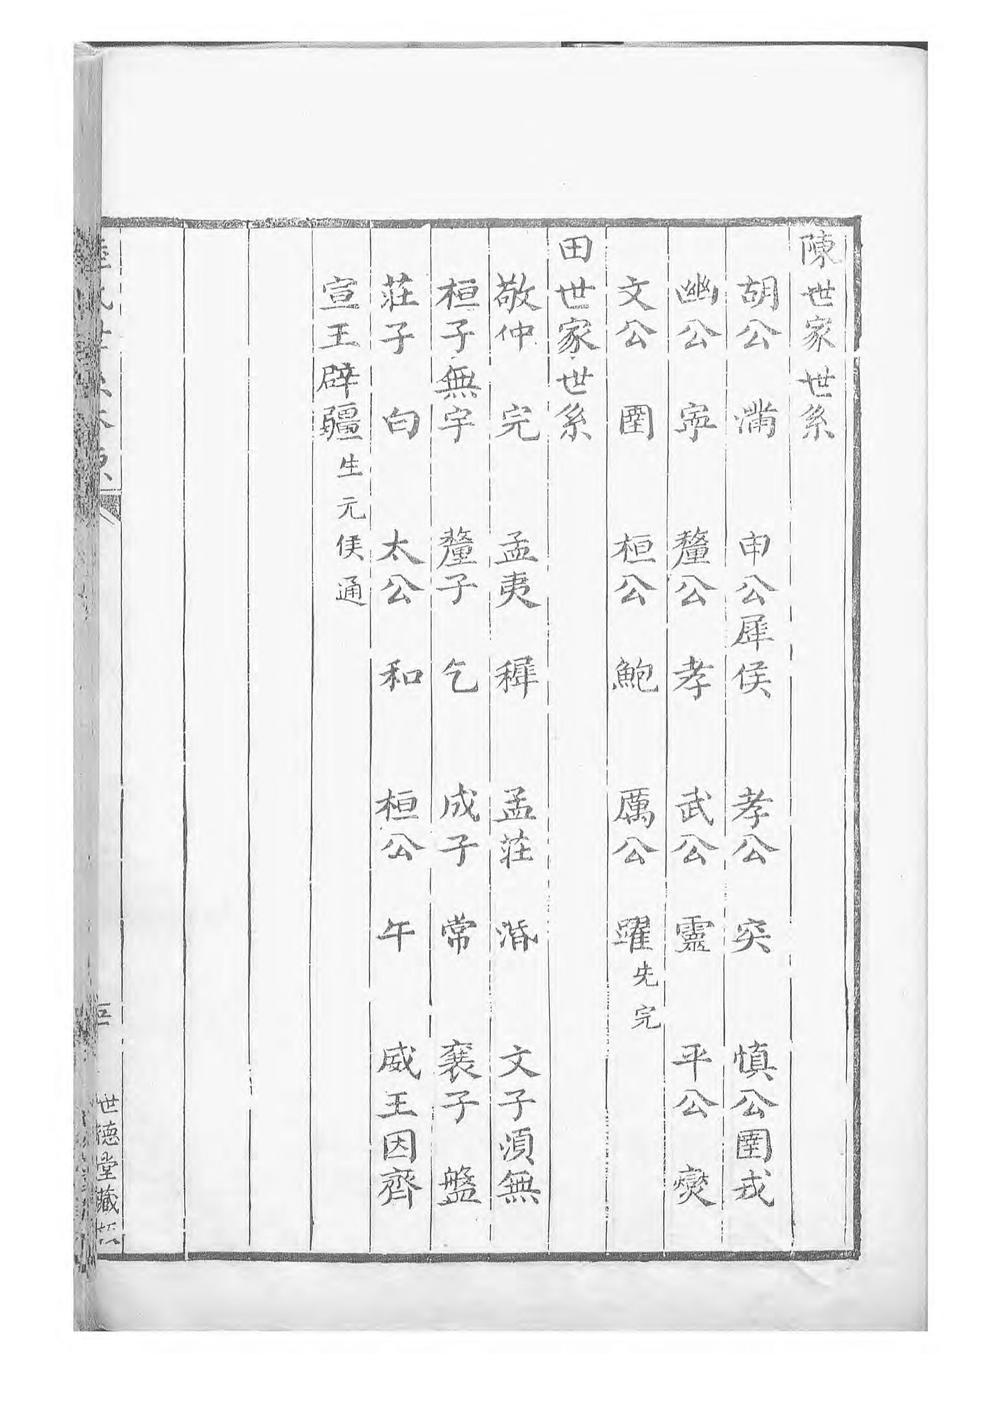 陳世家世系
胡公滿　申公犀侯　孝公突　慎公圉戎
幽公寍　釐公孝　武公靈　平公燮
文公圉　桓公鮑　厲公躍 先完
田世家世系
敬仲完　孟夷穉　孟莊湣　文子湏無
桓子無宇　釐子乞　成子常　襄子盤
莊子白　太公和　桓公午　威王因齊
宣王辟疆 生元侯通
世德堂藏